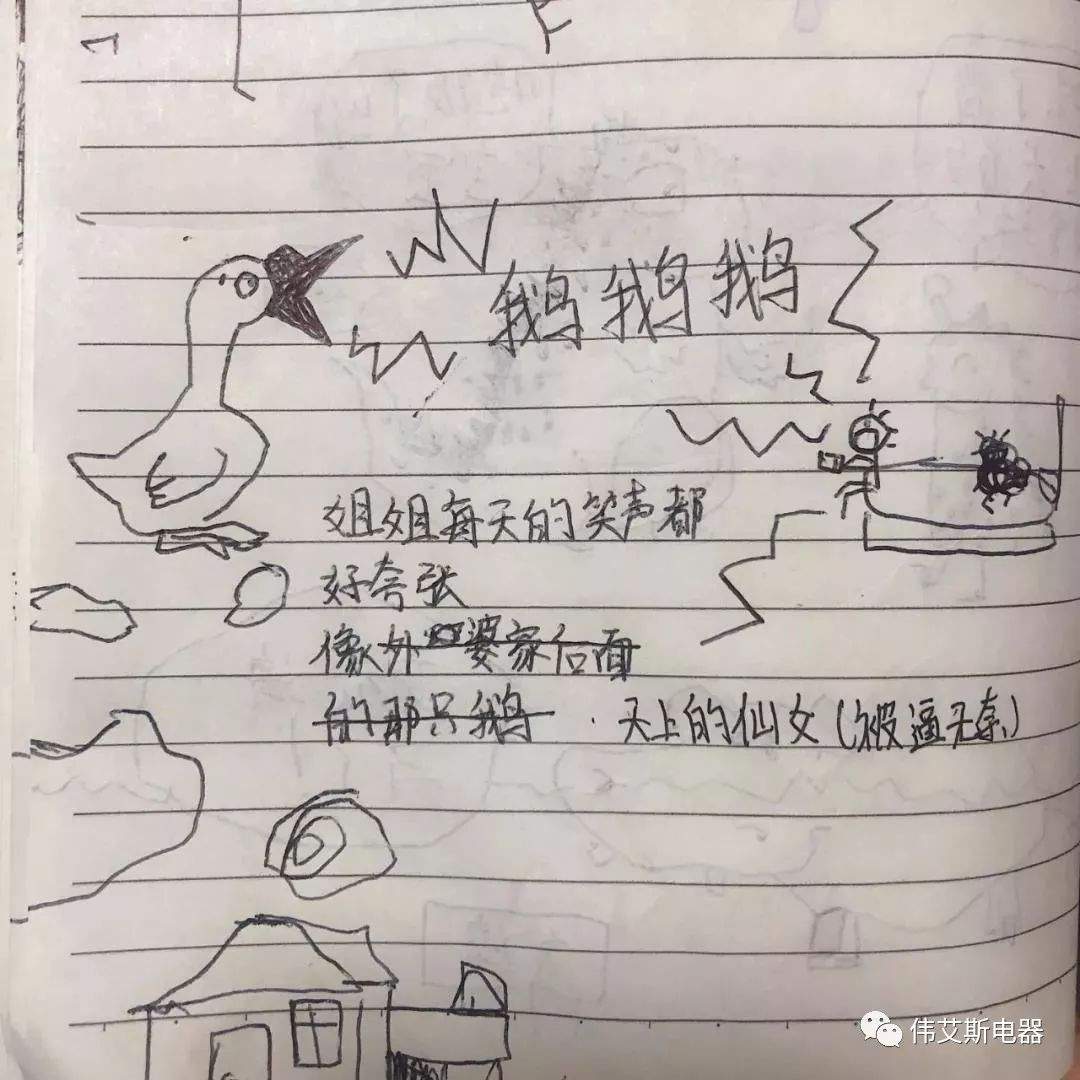 鹅鹅鹅
姐姐每天的笑声都
好夸张
像外婆家后面
的那只鹅.天上的仙女(被逼无奈)
伟艾斯电器